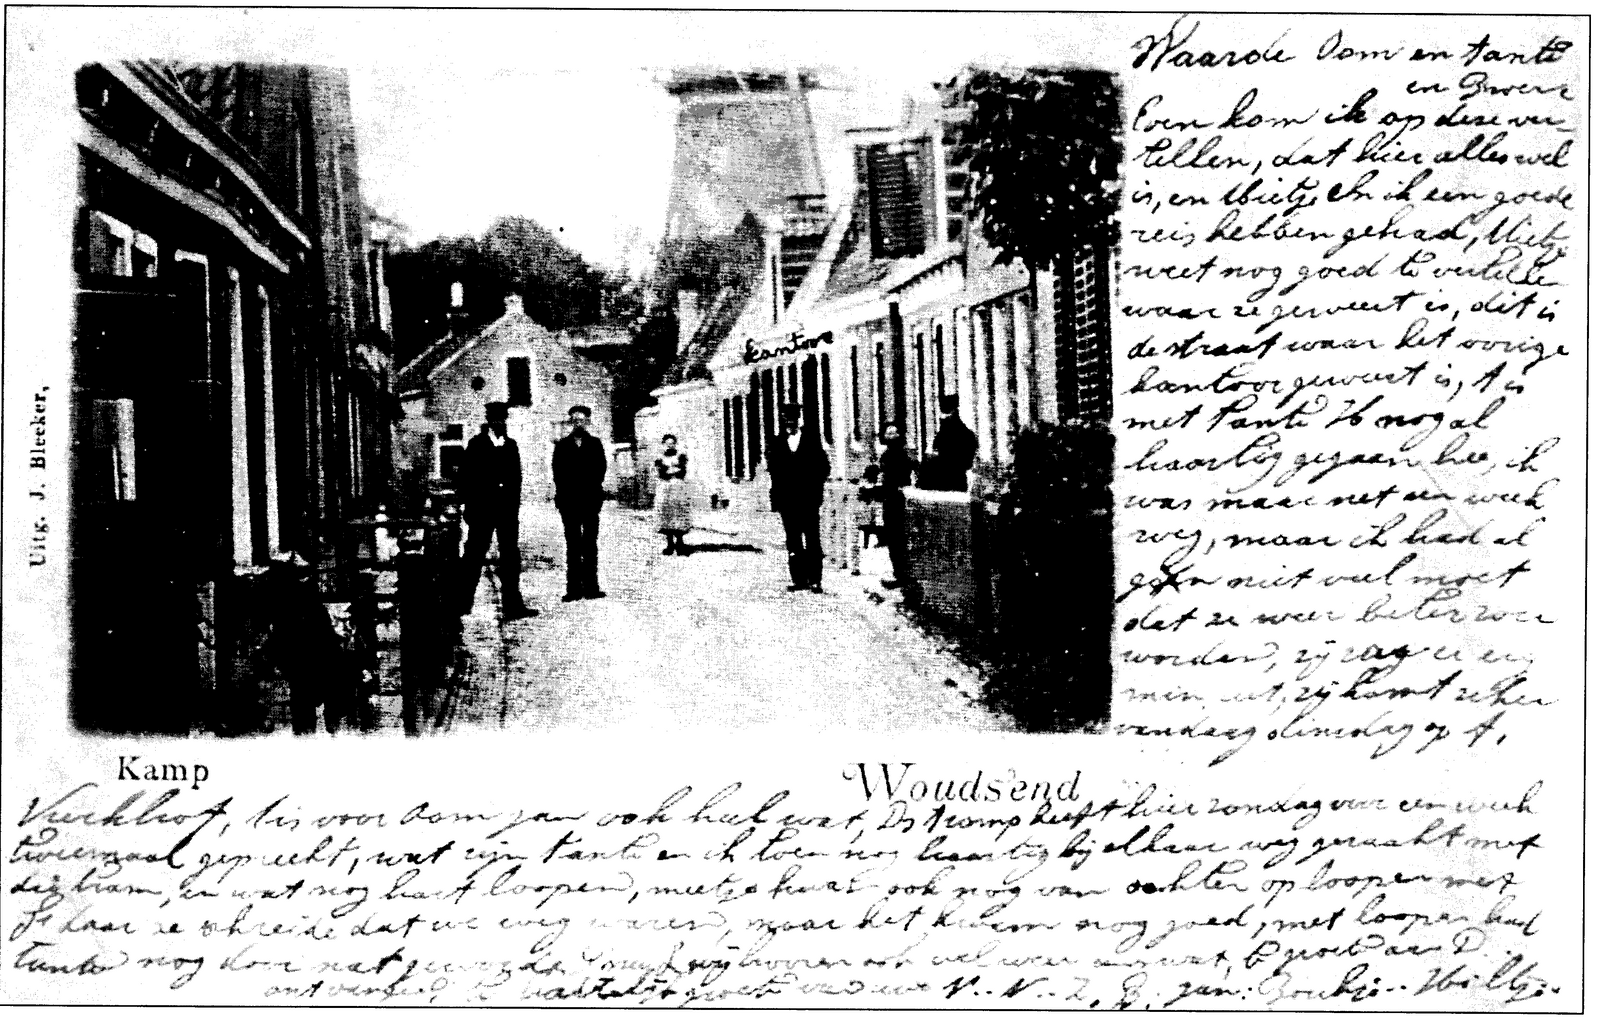 Waarde Oom en tante
en
Even kom ik op deze ver-
tellen, dat hier alles wel
is, en Mietje en ik een goede
reis hebben gehad, Mietje
weet nog goed te vertellen
waar ze geweest is, dit is
de straat waar het vorige
kantoor geweest is, t is
met tante H nog al
haastig gegaan hee, ik
was maar net een week
weg, maar ik had al
niet veel moet
dat ze weer beter zou
worden, zij zag er erg
min uit, zij komt zeker
vandaag dinsdag op t.
kantoor
Uitg. J. Bleeker,
Kamp
Woudsend
Kerkhof, tis voor Oom jan ook heel wat, Ds Tromp heeft hier zondag voor een week
tweemaal gepreekt, wat zijn tante en ik toen nog haastig bij elkaar weg geraakt met
die tram, en wat nog hart loopen, mietje kwam ook nog van achter op loopen met
daar ze schreide dat we weg waren, maar het kwam nog goed, met loopen had
tante nog door nat geworden wij hooren ook wel weer eens wat, groet aan
ontvangen, hartelijk groet van uwe N.. N.. Z. B. jan: Boukje.. Wiltje..